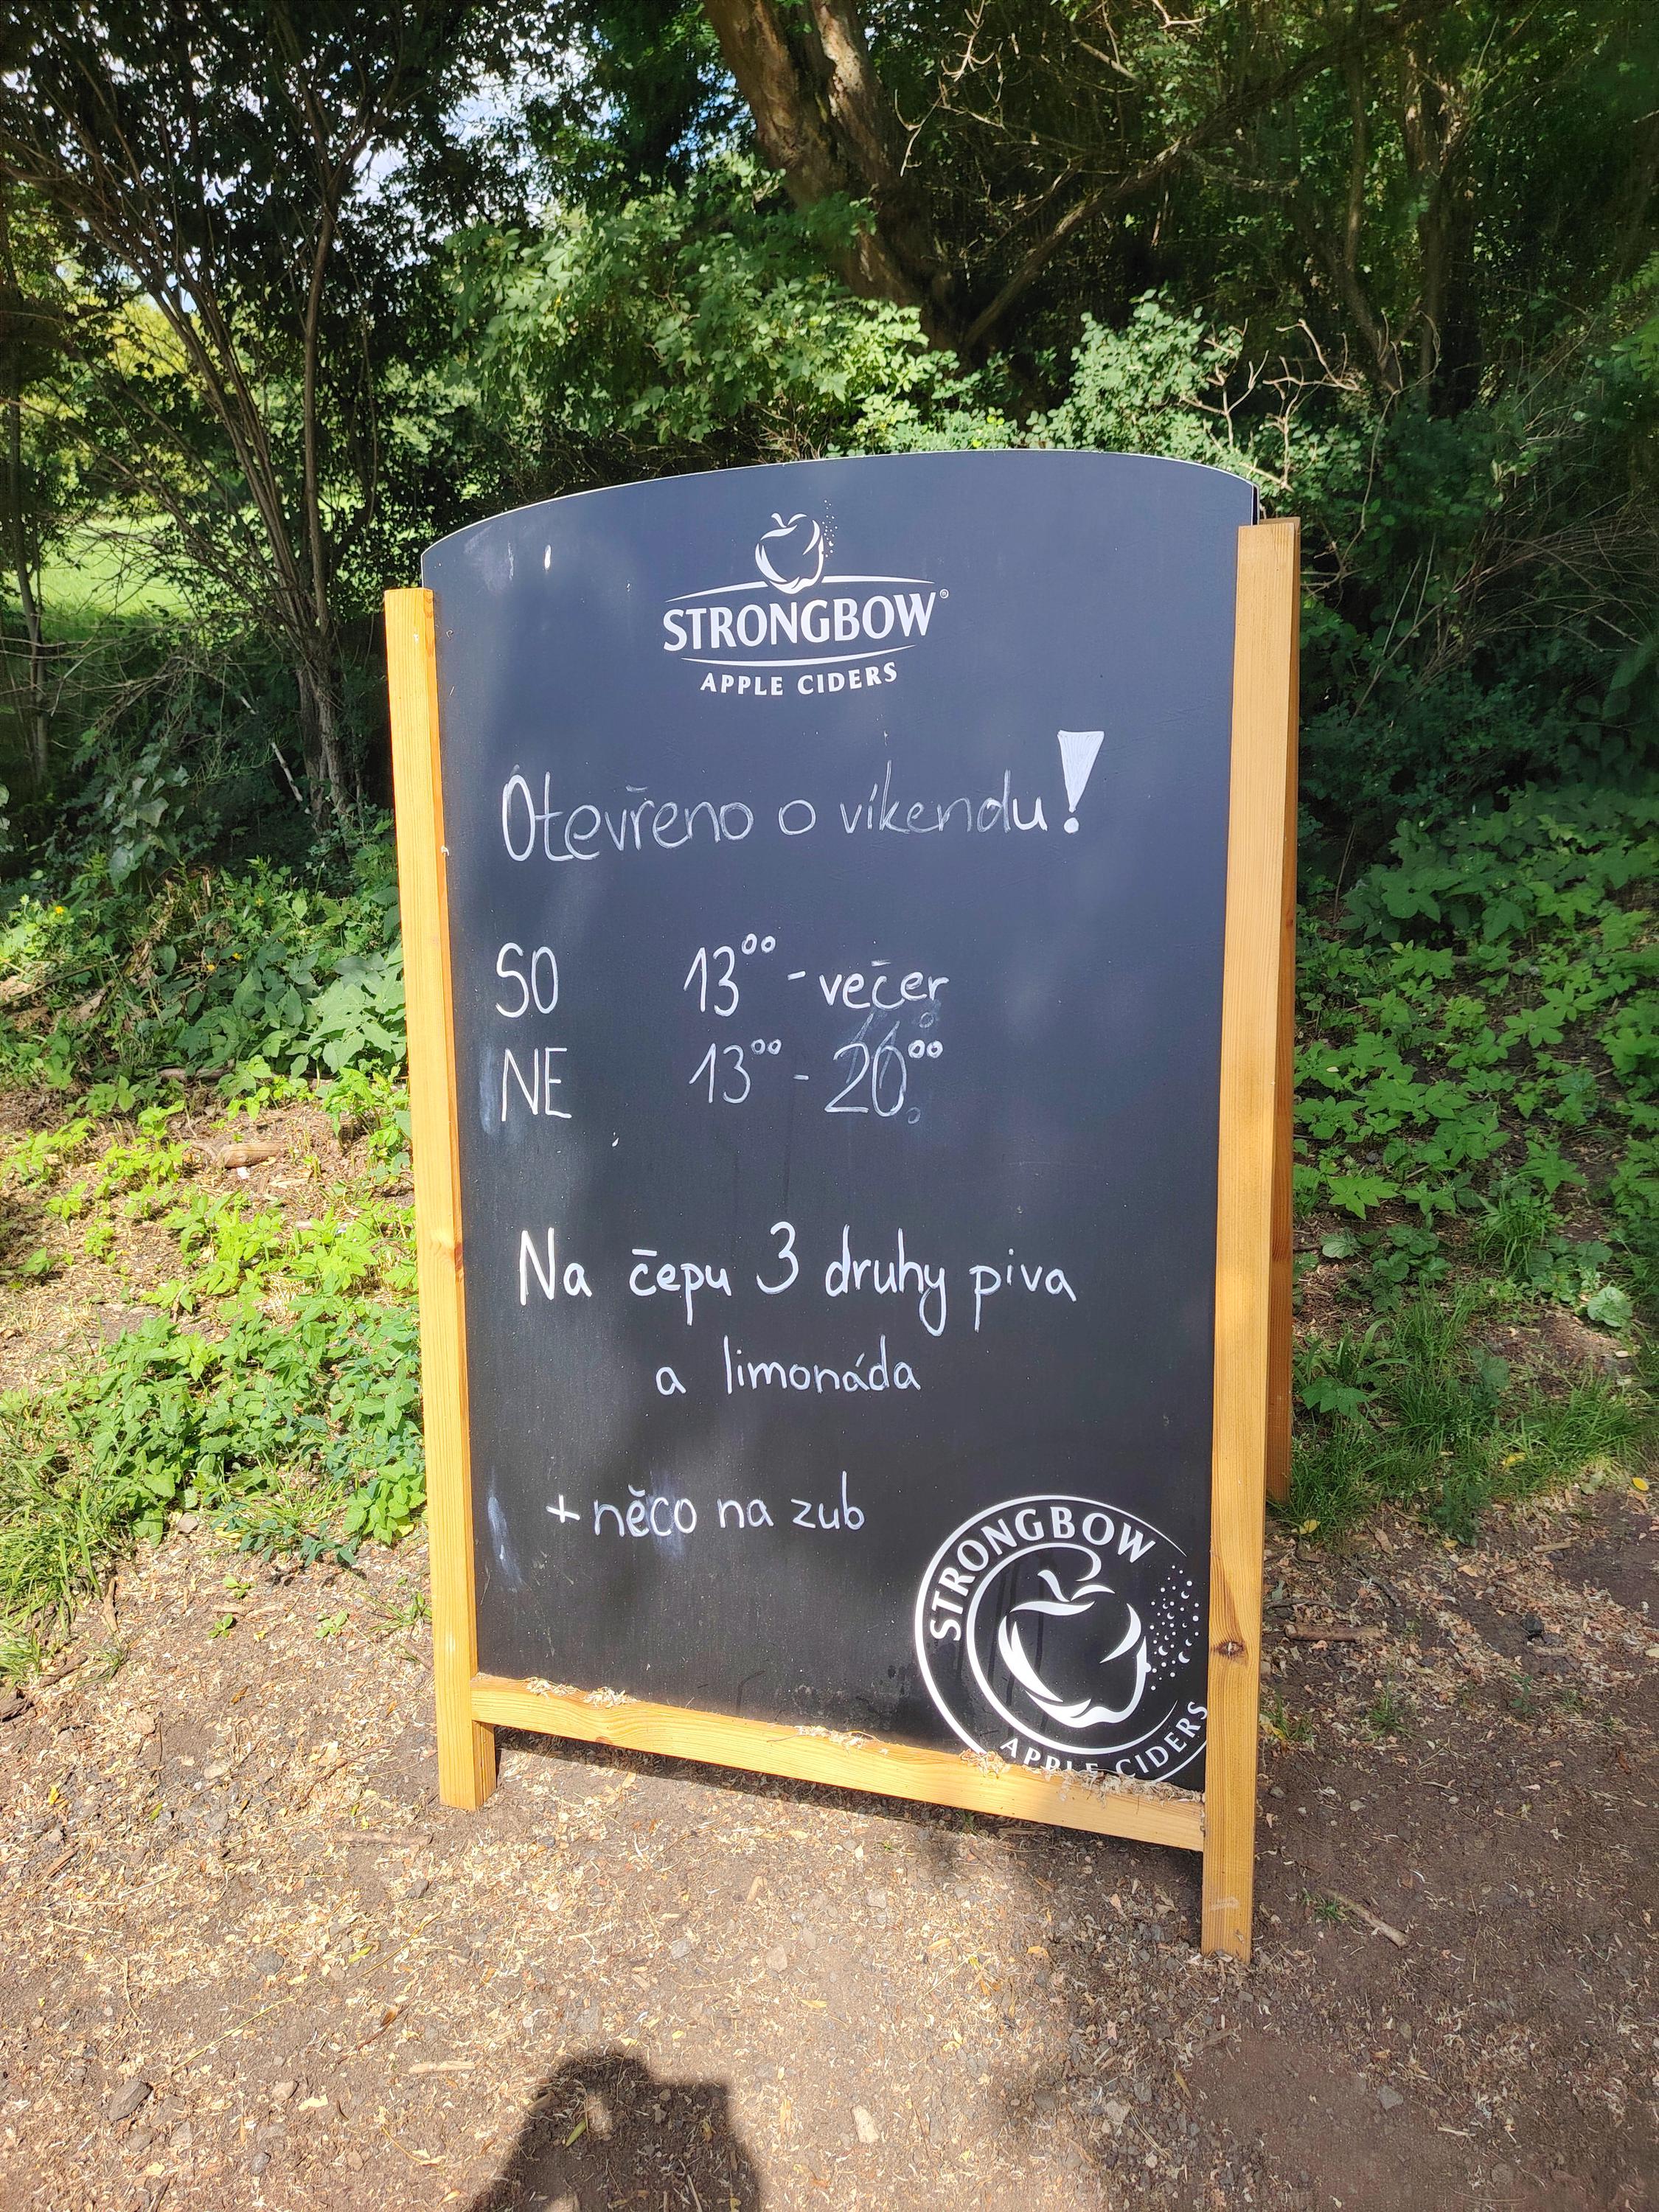 STRONGBOW®
APPLE CIDERS
Otevřeno o víkendu!
SO 13⁰⁰ - večer
NE 13⁰⁰ - 20⁰⁰
Na čepu 3 druhy piva
a limonáda
+ něco na zub
STRONGBOW
APPLE CIDERS